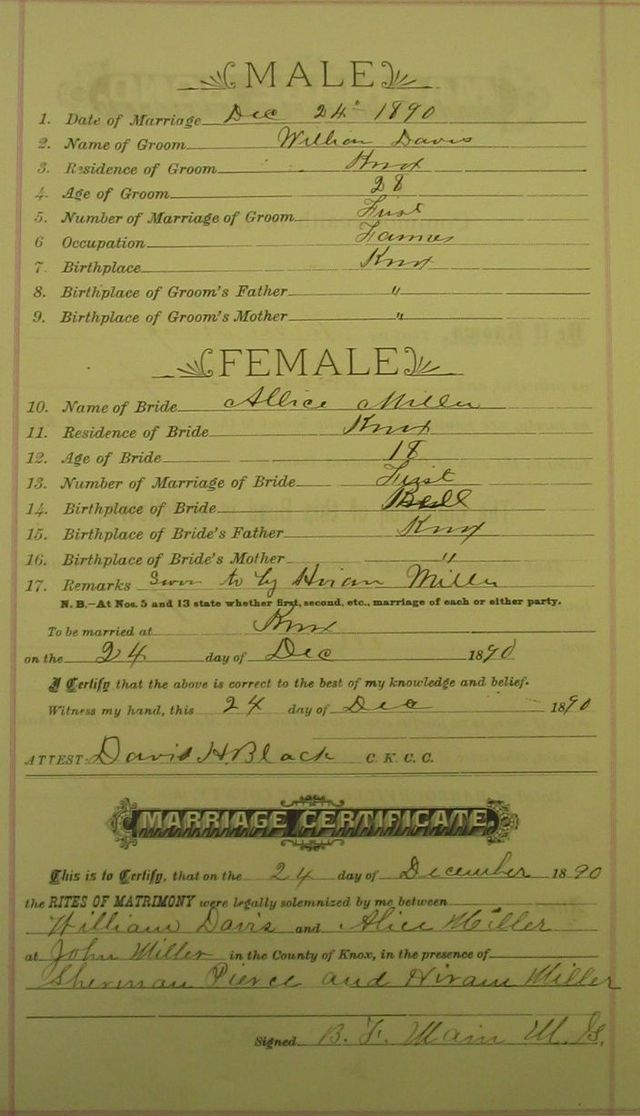 MALE
1. Date of Marriage Dec 24" 1890
2. Name of Groom William Davis
3. Residence of Groom Knox
4. Age of Groom 28
5. Number of Marriage of Groom First
6 Occupation Farmer
7. Birthplace Knox
8. Birthplace of Groom's Father "
9. Birthplace of Groom's Mother "
FEMALE
10. Name of Bride Allice Miller
11. Residence of Bride Knox
12. Age of Bride 18
13. Number of Marriage of Bride First
14. Birthplace of Bride Bell
15. Birthplace of Bride's Father Knox
16. Birthplace of Bride's Mother "
17. Remarks Sworn to by Hiram Miller
N. B.—At Nos. 5 and 13 state whether first, second, etc., marriage of each or either party.
To be married at Knox
on the 24 day of Dec 1890
I Certify that the above is correct to the best of my knowledge and belief.
Witness my hand, this 24 day of Dec 1890
ATTEST: David H. Black C. K. C. C.
MARRIAGE CERTIFICATE.
This is to Certify, that on the 24 day of December 1890
the RITES OF MATRIMONY were legally solemnized by me between
William Davis and Alice Miller
at John Miller in the County of Knox, in the presence of
Sherman Pierce and Hiram Miller
Signed B. F. Main M. G.